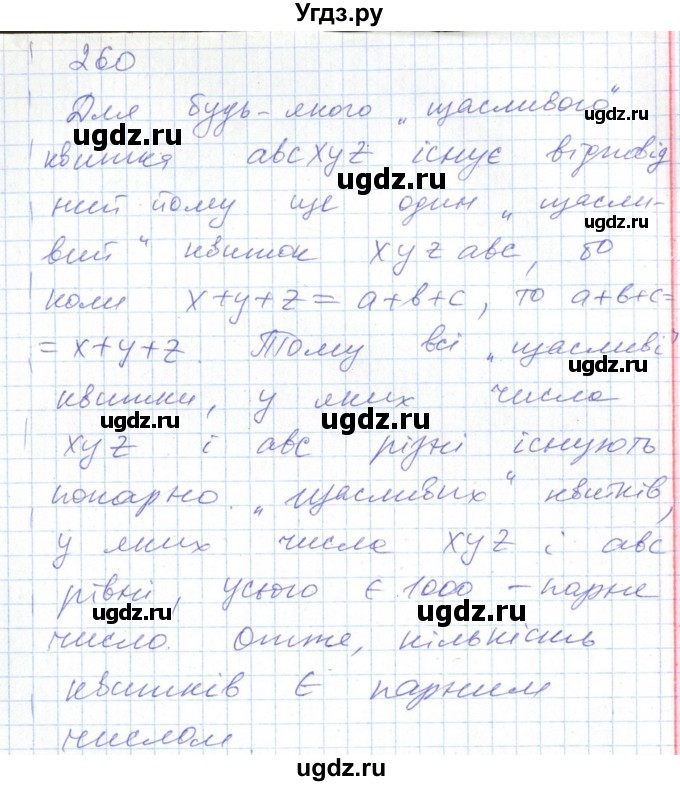 Угдз.ру
260
Для будь-якого „щасливого“
квитка abcxyz існує відповід
ний йому ще один „щасли-
вий“ квиток xyzabc, бо
коли x+y+z=a+b+c, то a+b+c=
=x+y+z. Тому всі „щасливі“
квитки, у яких числа
xyz і abc різні існують
попарно. „Щасливих“ квитків,
у яких числа xyz і abc
рівні, усього є 1000 – парне
число. Отже, кількість
квитків є парним
числом
ugdz.ru
ugdz.ru
ugdz.ru
ugdz.ru
ugdz.ru
ugdz.ru
ugdz.ru
ugdz.ru
ugdz.ru
ugdz.ru
ugdz.ru
ugdz.ru
ugdz.ru
ugdz.ru